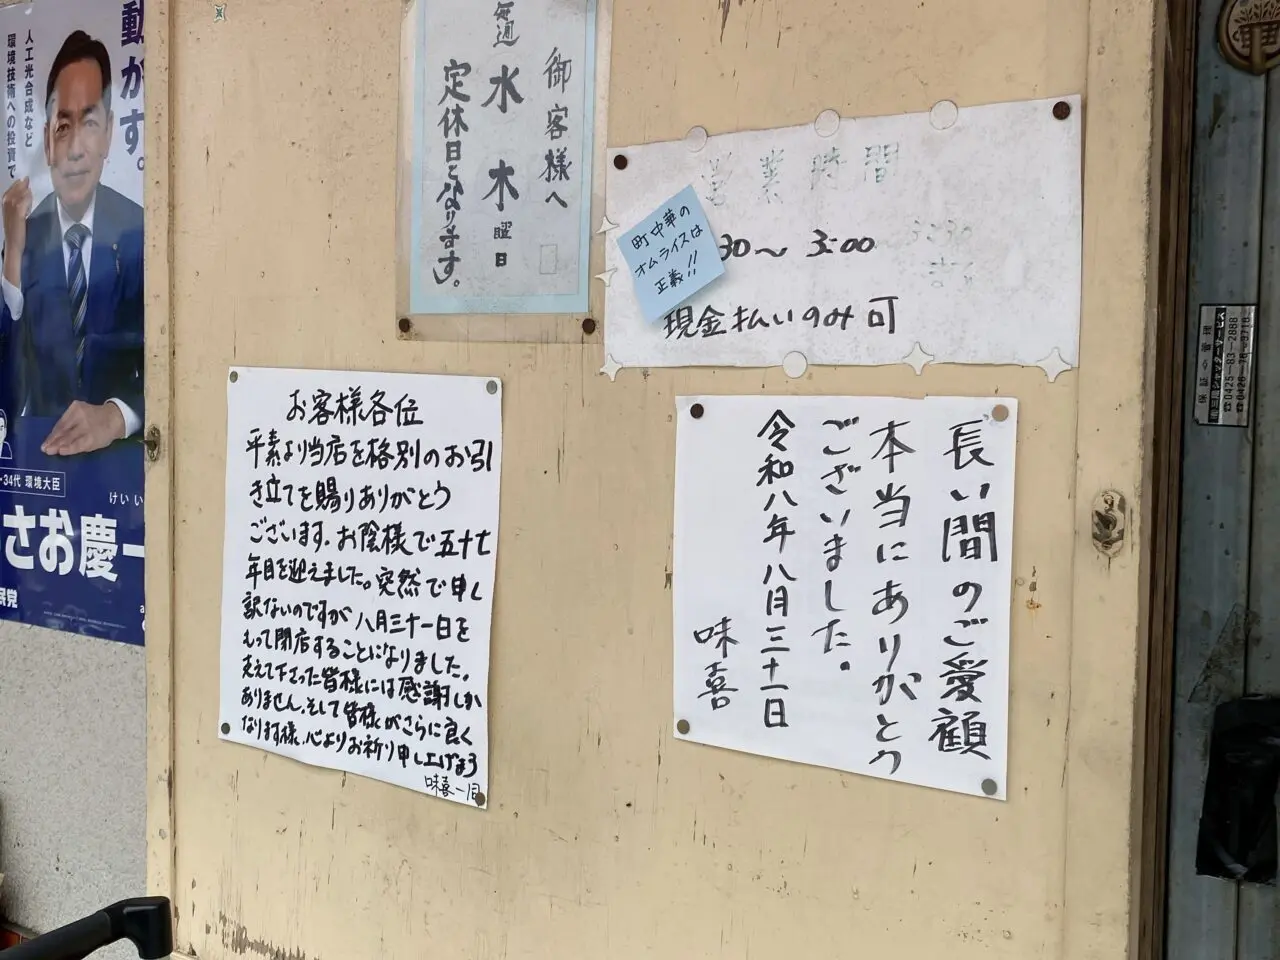 動かす。
人工光合成など
環境技術への投資で
34代 環境大臣
けいい
さお慶一
民党
御客様へ
毎週
水 木 曜日
定休日となります。
営業時間
30〜3:00
現金払いのみ可
町中華の
オムライスは
正義!!
お客様各位
平素より当店を格別のお引
き立てを賜りありがとう
ございます。お陰様で五十七
年目を迎えました。突然で申し
訳ないのですが八月三十一日を
もって閉店することになりました。
支えて下さった皆様には感謝しか
ありません。そして皆様がさらに良く
なります様、心よりお祈り申し上げます
味喜一同
長い間のご愛顧
本当にありがとう
ございました。
令和八年八月三十一日
味喜
保証〈〉管理
☎0425-83-2888